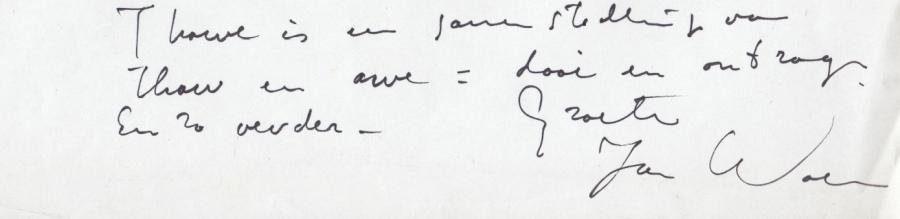 Thowe is een samenstelling van
Thow en awe = dooi en ontzag.
En zo verder –
Groeten
Jan